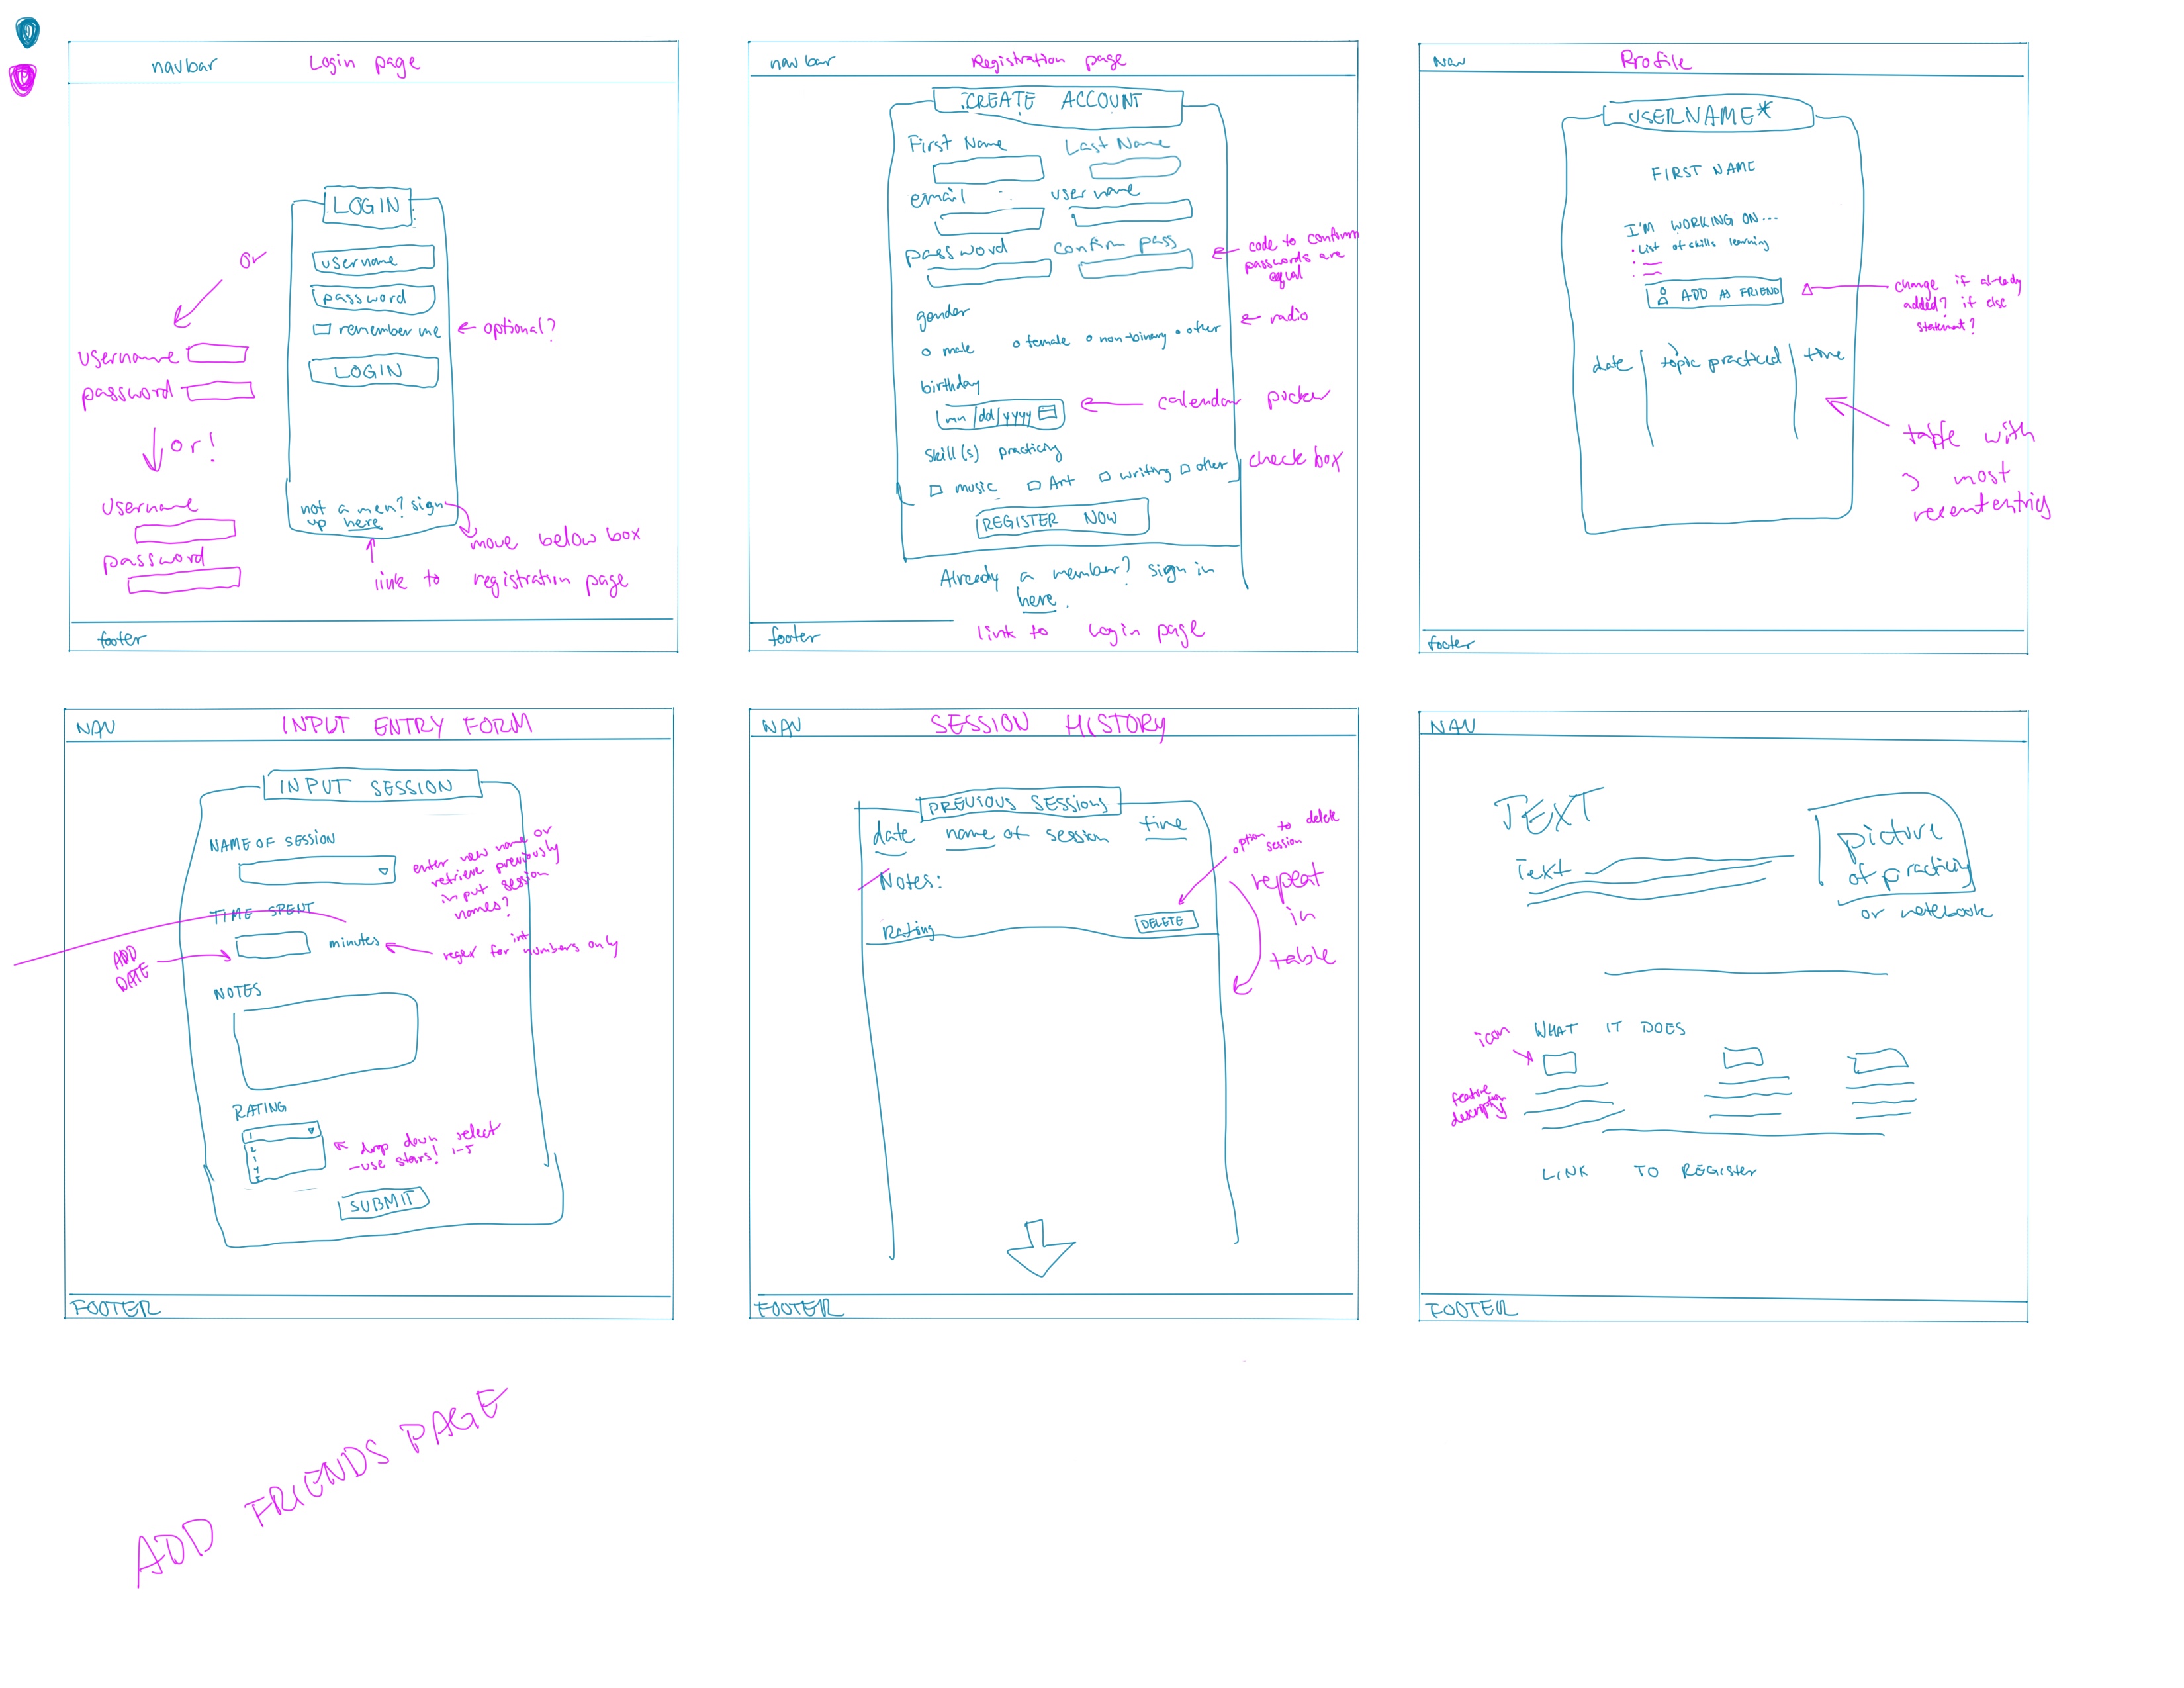 navbar Login page
LOGIN
username
or
password
remember me
← optional?
username
LOGIN
password
or!
username
not a mem? sign
up here
move below box
password
link to registration page
footer
navbar Registration page
CREATE ACCOUNT
First Name Last Name
email username
password confirm pass
code to confirm
passwords are
equal
gender
radio
male female non-binary other
birthday
mm/dd/yyyy
calendar picker
skill(s) practicing
check box
music Art writing other
REGISTER NOW
Already a member? sign in
here.
link to login page
footer
Nav Profile
USERNAME*
FIRST NAME
I'M WORKING ON...
List of skills learning
ADD AS FRIEND
change if already
added? if else
statement?
date topic practiced time
table with
most
recent entries
footer
NAV INPUT ENTRY FORM
INPUT SESSION
NAME OF SESSION
enter new name or
retrieve previously
input session
names?
TIME SPENT
minutes
ADD
DATE
int
regex for numbers only
NOTES
RATING
1
drop down select
-use stars! 1-5
SUBMIT
FOOTER
NAV SESSION HISTORY
PREVIOUS SESSIONS
date name of session time
option to delete
session
Notes:
repeat
in
table
Rating
DELETE
FOOTER
NAV
TEXT
Text
picture
of practicing
or notebook
icon
WHAT IT DOES
feature
description
LINK TO REGISTER
FOOTER
ADD FRIENDS PAGE